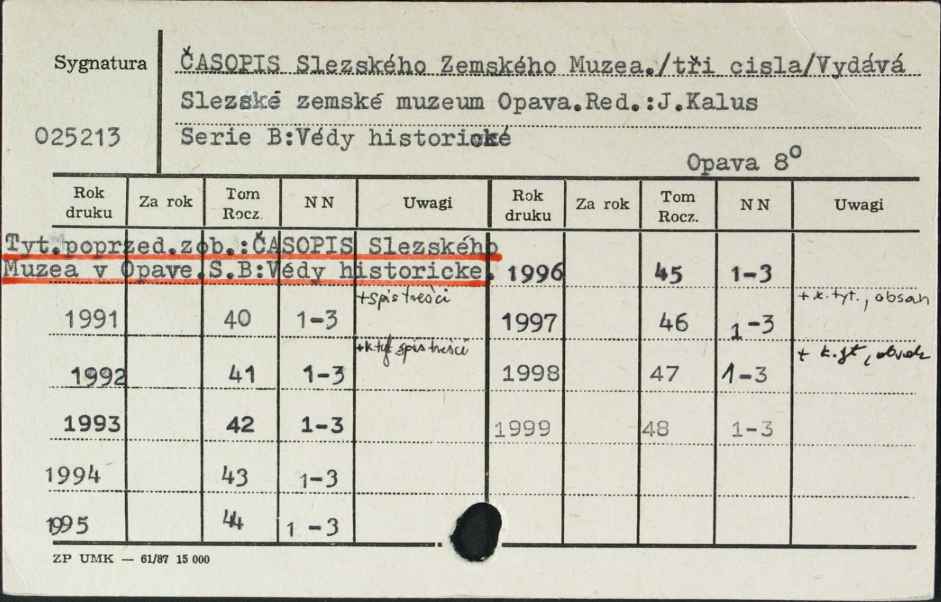 Sygnatura
ČASOPIS Slezského Zemského Muzea./tři cisla/Vydává
Slezské zemské muzeum Opava.Red.:J.Kalus
025213
Serie B:Védy historické
Opava 8⁰
Rok druku Za rok Tom Rocz. NN Uwagi Rok druku Za rok Tom Rocz. NN Uwagi
Tyt.poprzed.zob.:ČASOPIS Slezského
Muzea v Opave.S.B:Védy historicke. 1996 45 1-3
+spis treści + k. tyt., obsah
1991 40 1-3 1997 46 1-3
+k tyt spis treści
1992 41 1-3 1998 47 1-3
1993 42 1-3 1999 48 1-3
1994 43 1-3
1995 44 1-3
ZP UMK — 61/87 15 000